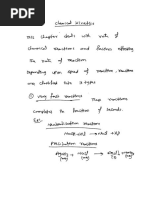 Chemical Kinetics
This Chapter deals with rate of
chemical reactions and factors affecting
the rate of reaction.
Depending upon speed of reaction, reactions
are classified into 3 types
① Very fast reactions
These reactions
completes in fraction of seconds.
Ex: Neutralisation reactions
Precipitation reactions